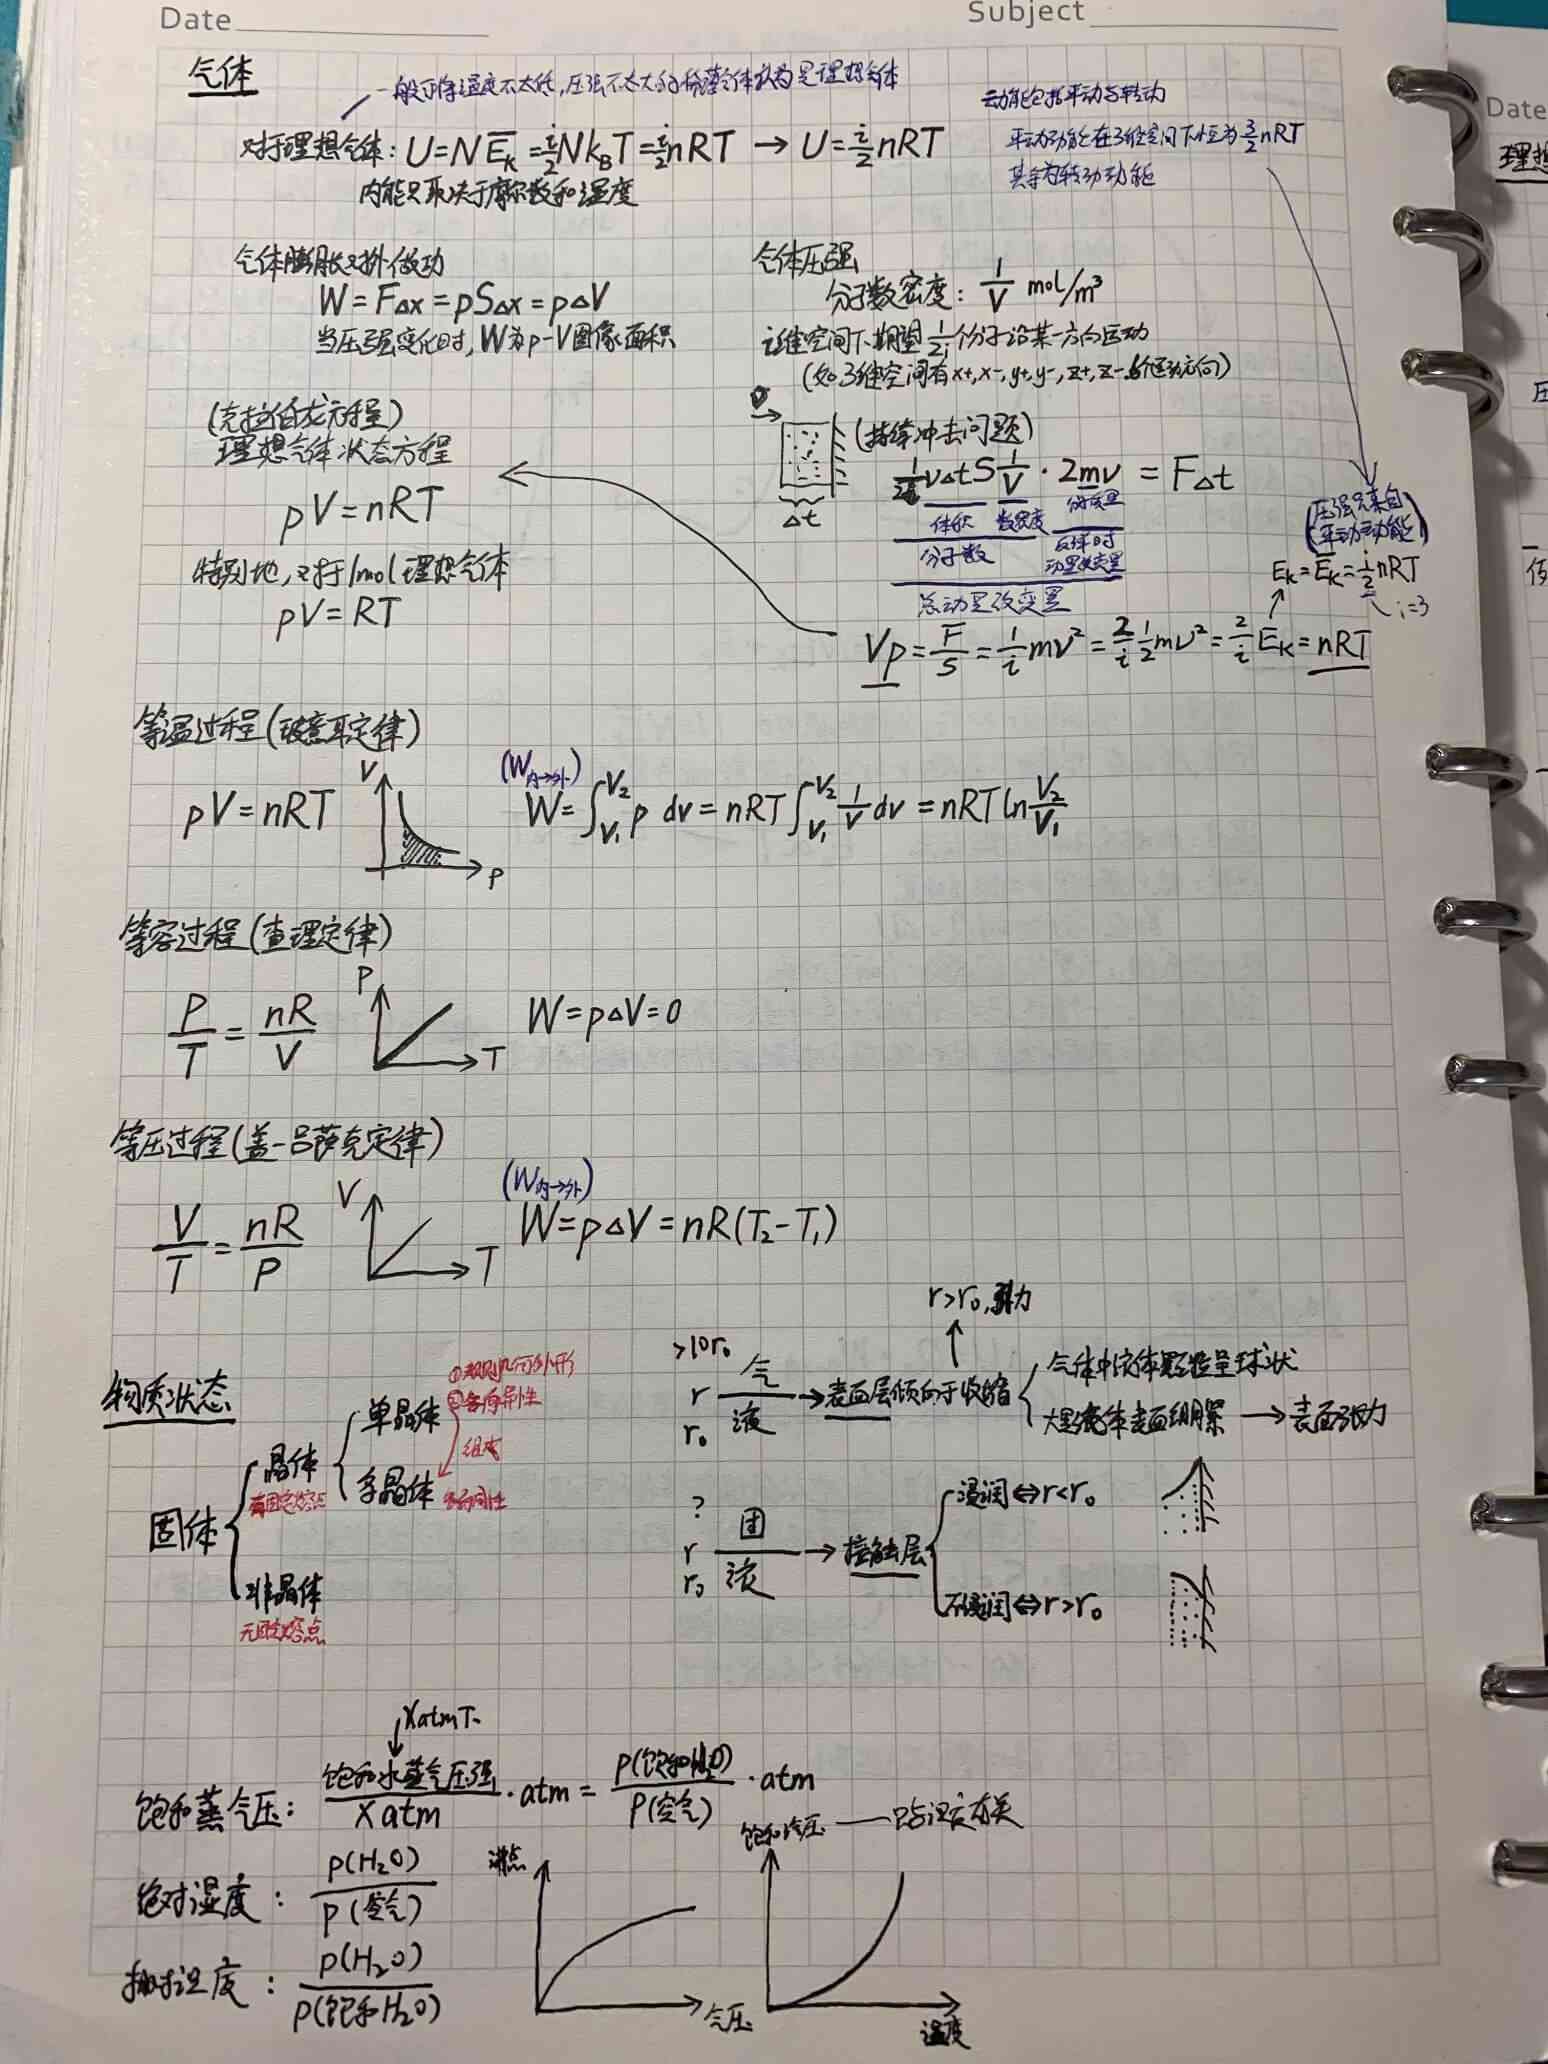 Date
Subject
气体
一般可将温度不太低,压强不太大的稀薄气体认为是理想气体
对于理想气体: U=NE̅ₖ=i/2 Nk_BT=i/2 nRT → U=i/2 nRT
内能只取决于摩尔数和温度
动能包括平动与转动
平动动能在3维空间下恒为3/2 nRT
其余为转动动能
气体膨胀对外做功
W=FΔx=pSΔx=pΔV
当压强变化时, W为p-V图像面积
气体压强
分子数密度: 1/V mol/m³
i维空间下期望1/2i个分子沿某一方向运动
(如3维空间有x+,x-,y+,y-,z+,z-6个运动方向)
(克拉伯龙方程)
理想气体状态方程
pV=nRT
特别地,对于1mol理想气体
pV=RT
v
(持续冲击问题)
Δt
1/2i vΔtS 1/V · 2mv = FΔt
体积 数密度 分子质量
分子数 反弹时动量改变量
总动量改变量
(压强只来自
平动动能)
Eₖ=E̅ₖ=i/2 nRT
i=3
Vp=F/S=1/i mv²=2/i 1/2 mv²=2/i E̅ₖ=nRT
等温过程(玻意耳定律)
pV=nRT
V
P
(W内→外)
W=∫_{V₁}^{V₂} p dv=nRT∫_{V₁}^{V₂} 1/V dv=nRT ln V₂/V₁
等容过程(查理定律)
P/T=nR/V
P
T
W=pΔV=0
等压过程(盖-吕萨克定律)
V/T=nR/P
V
T
(W内→外)
W=pΔV=nR(T₂-T₁)
物质状态
固体
晶体
有固定熔点
单晶体
①规则几何外形
②各向异性
组成
多晶体
各向同性
非晶体
无固定熔点
>10r₀
r
r₀
气
液
→表面层倾向于收缩
r>r₀,引力
气体中液体颗粒呈球状
大量液体表面绷紧 → 表面张力
?
r
r₀
固
液
→接触层
浸润⇔r<r₀
不浸润⇔r>r₀
XatmT.
饱和蒸气压: 饱和水蒸气压强/Xatm · atm = P(饱和H₂O)/P(空气) · atm
绝对湿度: P(H₂O)/P(空气)
相对湿度: P(H₂O)/P(饱和H₂O)
沸点
气压
饱和汽压 — 只与温度有关
温度
Date
理想